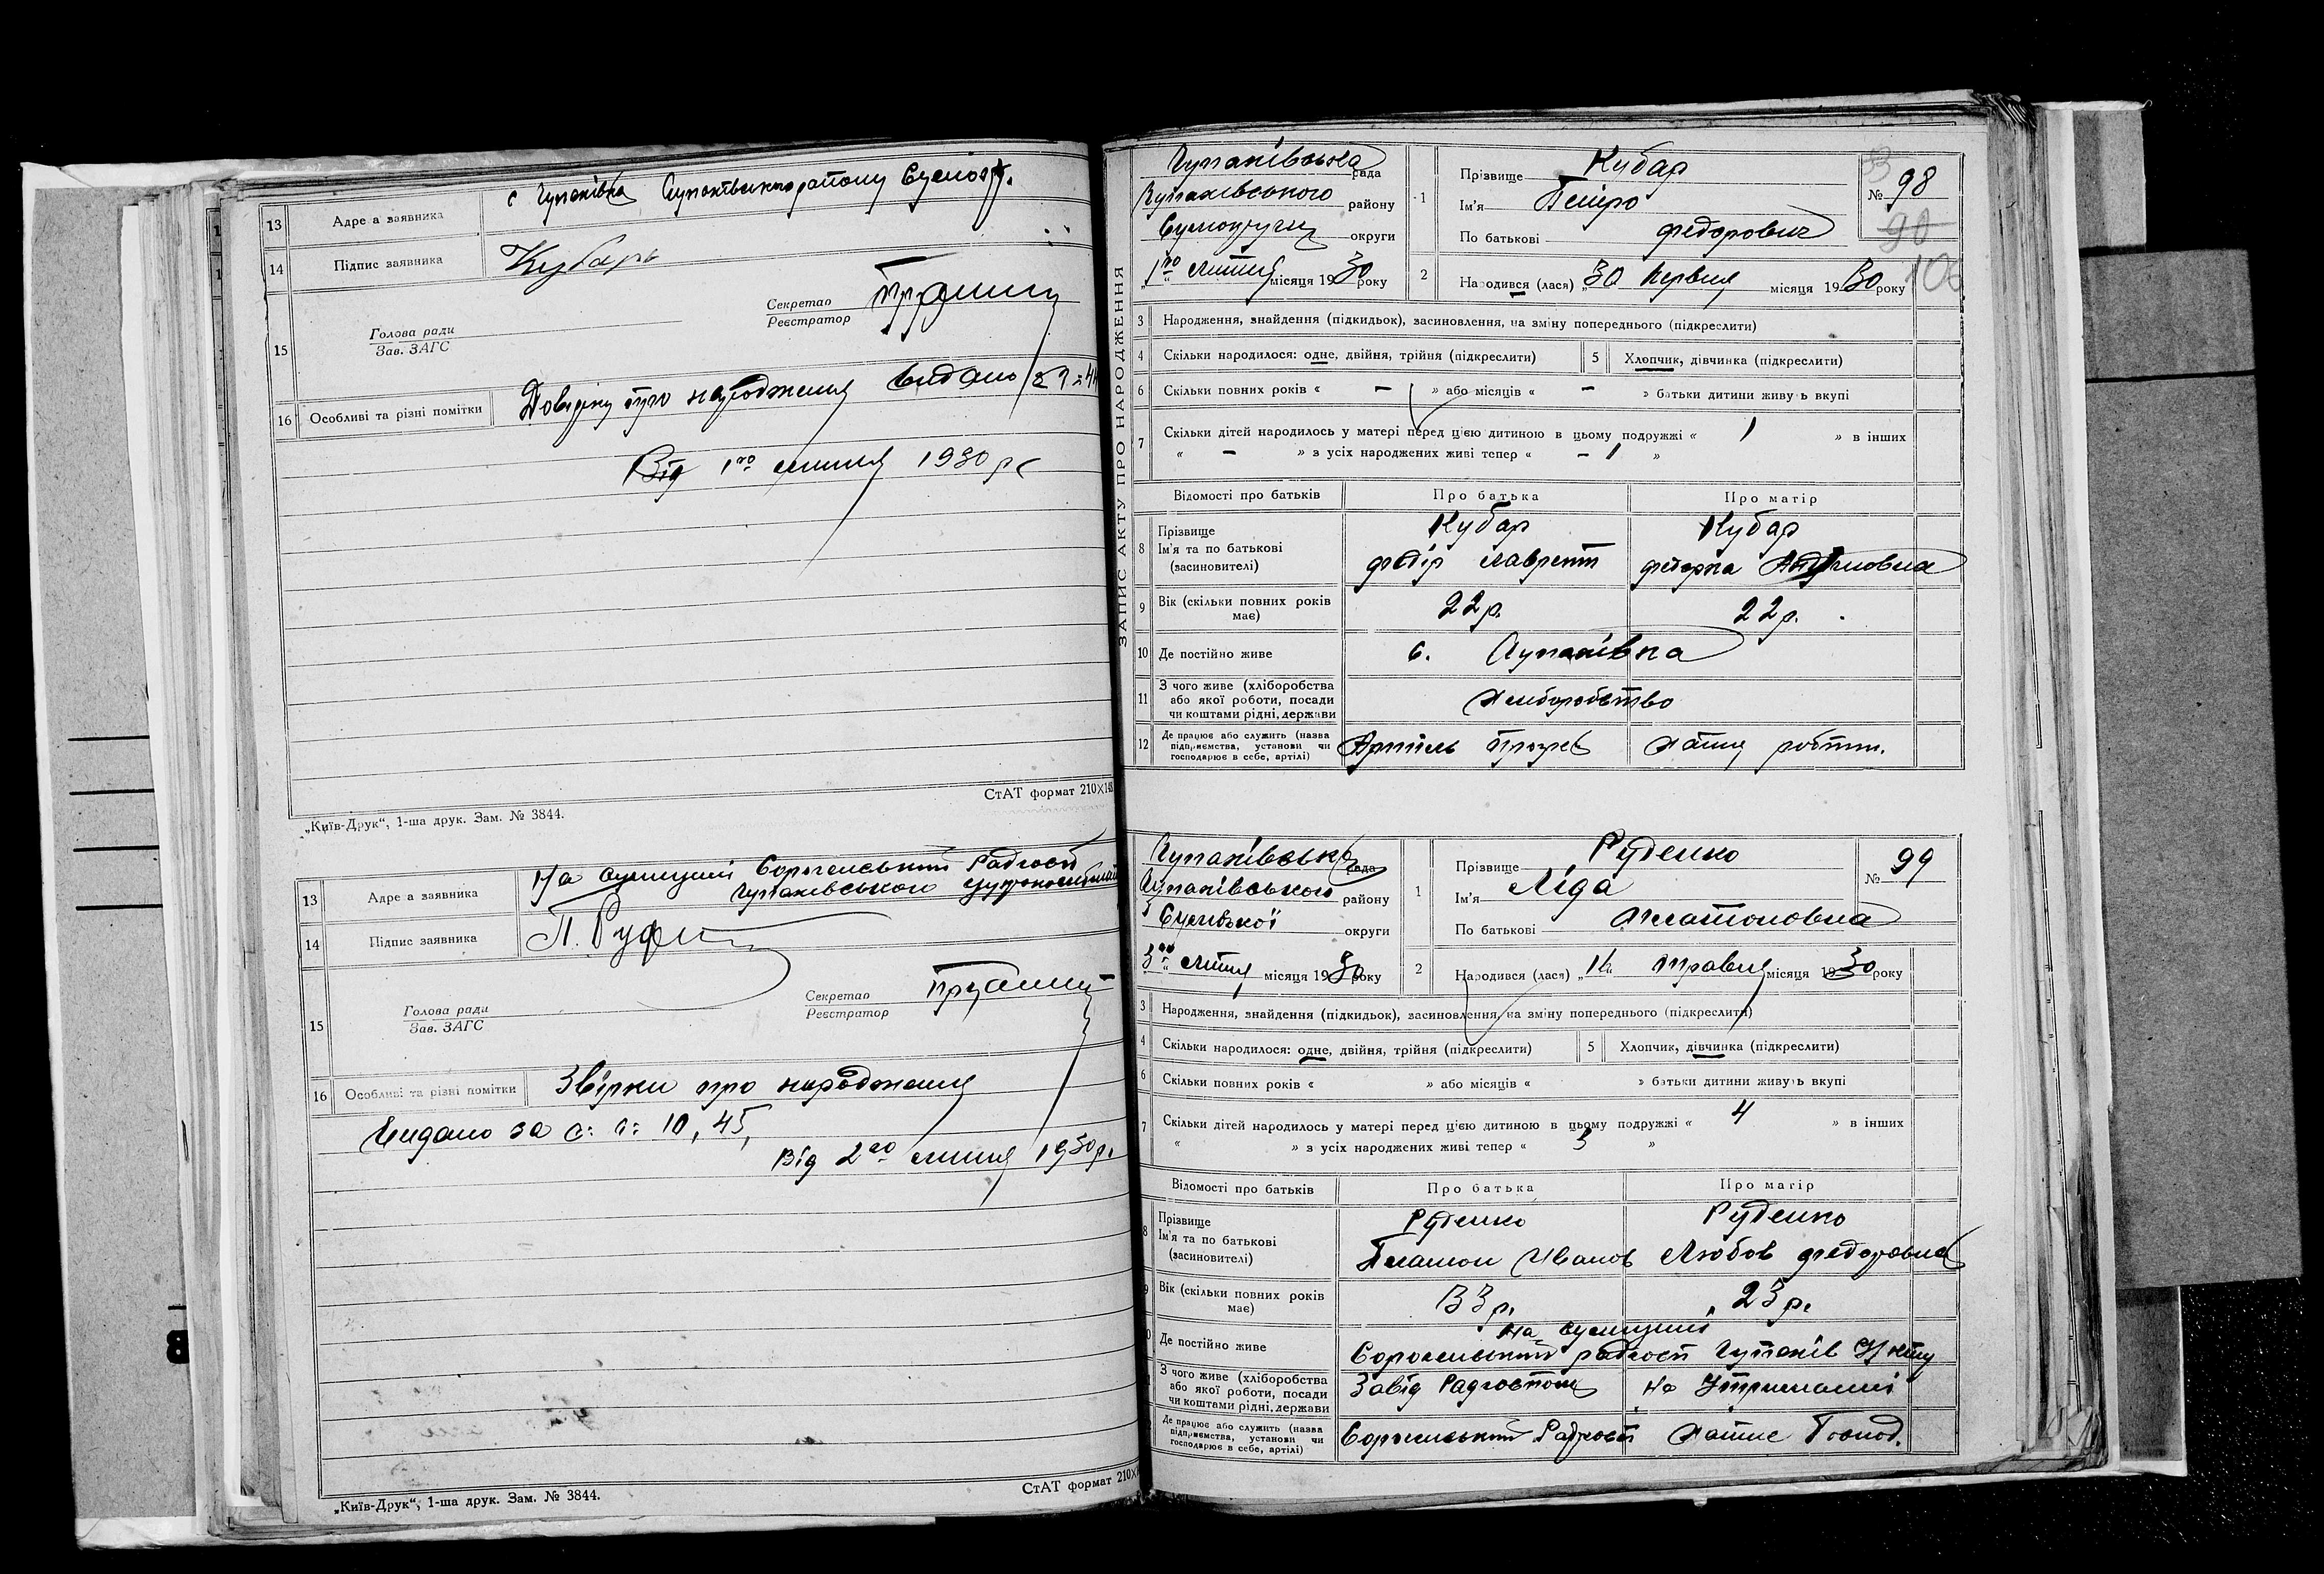 13 Адреса заявника с Чупахівка Чупахівського району Сумокр.
14 Підпис заявника Кубарь
15 Голова ради
Зав. ЗАГС
Секретар
Реєстратор
16 Особливі та різні помітки Довідку про народження видано
Від 1го липня 1930 р
СтАТ формат 210×
„Київ-Друк“, 1-ша друк. Зам. № 3844.
13 Адреса заявника На
Чупахівського
14 Підпис заявника П.
15 Голова ради
Зав. ЗАГС
Секретар
Реєстратор
16 Особливі та різні помітки Звірки про народження
видано за 10, 45,
Від 2го липня 1930 р.
СтАТ формат 210×
„Київ-Друк“, 1-ша друк. Зам. № 3844.
ЗАПИС АКТУ ПРО НАРОДЖЕННЯ
Чупахівська рада
Чупахівського району
Сумокруги округи
1го липня місяця 1930 року
1 Прізвище Кубар
Ім'я Петро
По батькові Федорович
№ 98
90
2 Народився (лася) „30 червня місяця 1930 року
3 Народження, знайдення (підкидьок), засиновлення, на зміну попереднього (підкреслити)
4 Скільки народилося: одне, двійня, трійня (підкреслити) 5 Хлопчик, дівчинка (підкреслити)
6 Скільки повних років « - » або місяців « - » батьки дитини живуть вкупі
7 Скільки дітей народилось у матері перед цією дитиною в цьому подружжі « 1 » в інших
« - » з усіх народжених живі тепер « - 1 »
Відомості про батьків Про батька Про матір
8 Прізвище Кубар Кубар
Ім'я та по батькові Федір Лаврент
(засиновителі)
9 Вік (скільки повних років має) 22 р. 22 р.
10 Де постійно живе с. Чупахівка
11 З чого живе (хліборобства
або якої роботи, посади
чи коштами рідні, держави хліборобство
12 Де працює або служить (назва
підприємства, установи чи
господарює в себе, артілі) Артіль хатня робітн.
Чупахівська рада
Чупахівського району
Сумської округи
3го липня місяця 1930 року
1 Прізвище Руденко
Ім'я Ліда
По батькові Платоновна
№ 99
2 Народився (лася) „ травня місяця 1930 року
3 Народження, знайдення (підкидьок), засиновлення, на зміну попереднього (підкреслити)
4 Скільки народилося: одне, двійня, трійня (підкреслити) 5 Хлопчик, дівчинка (підкреслити)
6 Скільки повних років « » або місяців « » батьки дитини живуть вкупі
7 Скільки дітей народилось у матері перед цією дитиною в цьому подружжі « 4 » в інших
« » з усіх народжених живі тепер « 3 »
Відомості про батьків Про батька Про матір
8 Прізвище Руденко Руденко
Ім'я та по батькові
(засиновителі) Платон Иванов Любов Федоровна
9 Вік (скільки повних років має) 33 р. 23 р.
На
Де постійно живе радгосп Чупахів
З чого живе (хліборобства
або якої роботи, посади
чи коштами рідні, держави Завід Радгоспом На утриманні
Де працює або служить (назва
підприємства, установи чи
господарює в себе, артілі) Радгосп Хатнє Господ.